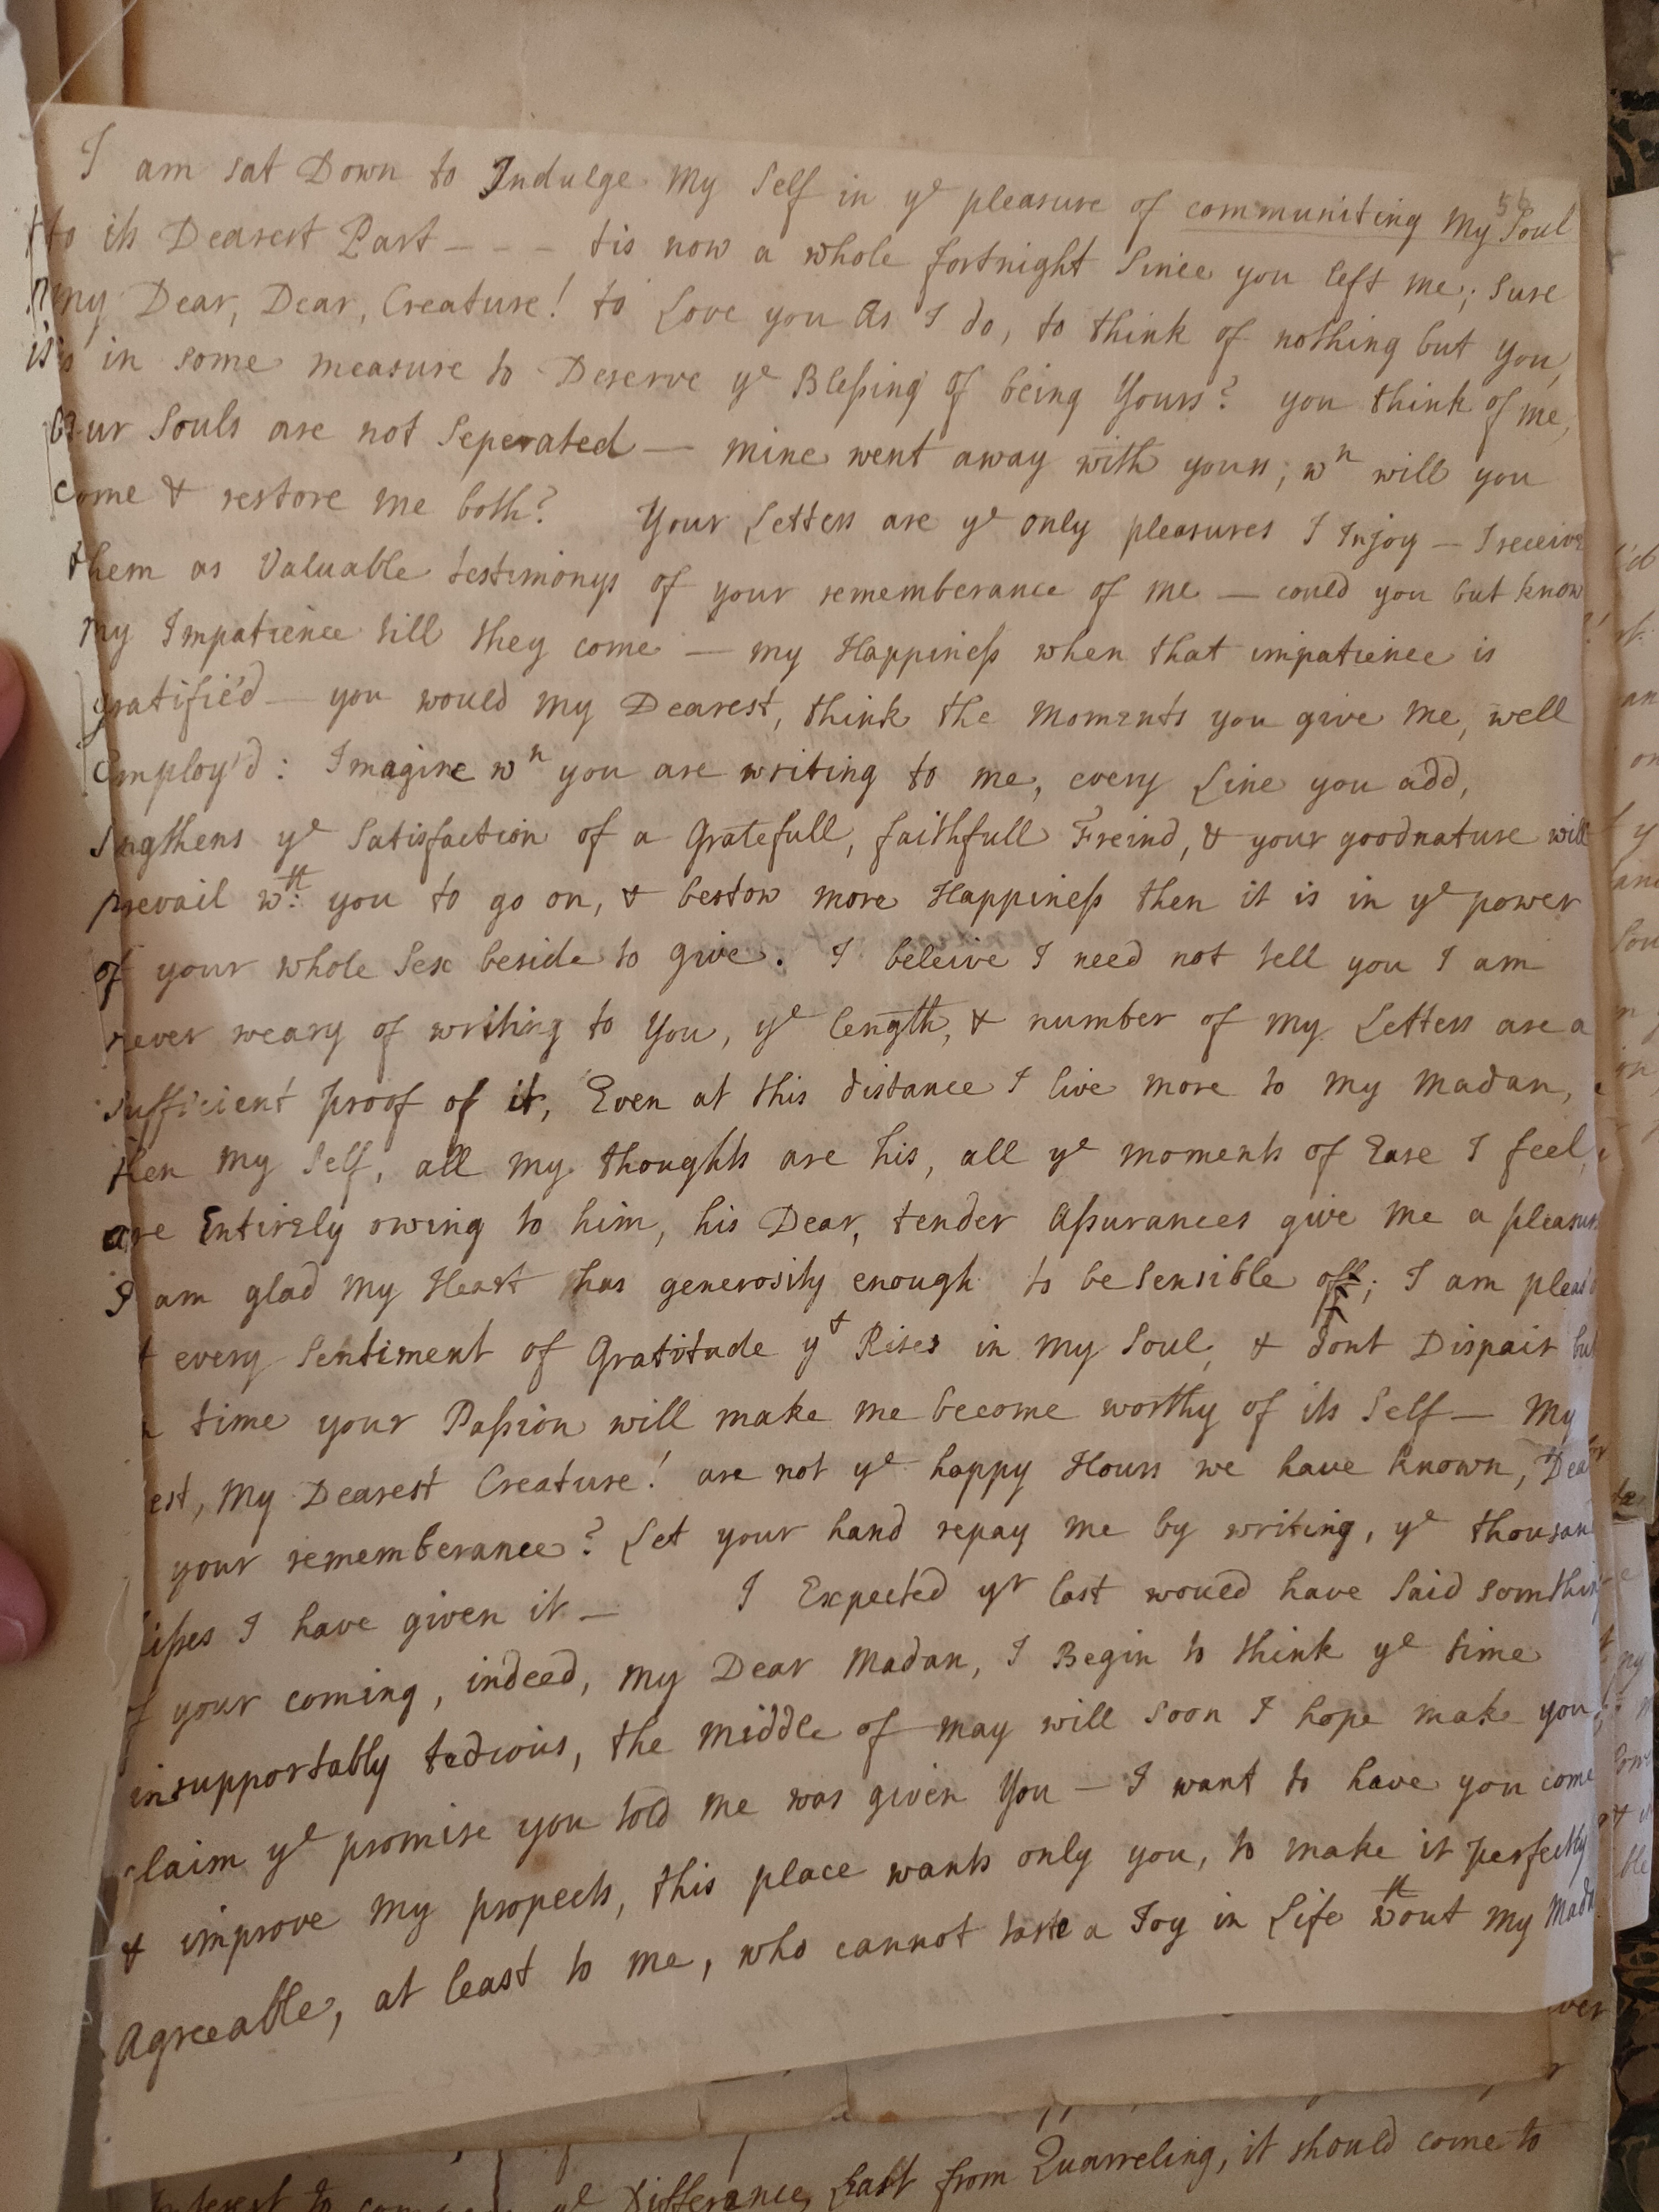 56
I am sat Down to Indulge My Self in ye pleasure of communiting My Soul
to its Dearest Part - - - tis now a whole fortnight Since you left me; Sure
my Dear, Dear, Creature! to Love you As I do, to think of nothing but you,
is in some measure to Deserve ye Blessing of being Yours? you think of me,
Our Souls are not Seperated — mine went away with yours; wn will you
come & restore me both? Your Letters are ye only pleasures I Injoy — I receive
them as Valuable testimonys of your rememberance of me — could you but know
my Impatience till they come — my Happiness when that impatience is
gratifie'd — you would my Dearest, think the Moments you give me, well
Employ'd: Imagine wn you are writing to me, every Line you add,
lengthens ye Satisfaction of a Gratefull, faithfull Freind, & your goodnature will
prevail wth you to go on, & bestow more Happiness then it is in ye power
of your whole Sex beside to give. I beleive I need not tell you I am
never weary of writing to You, ye length, & number of my Letters are a
sufficient proof of it, Even at this distance I live more to my Madan,
then my Self, all my thoughts are his, all ye moments of Ease I feel,
are Entirely owing to him, his Dear, tender Assurances give me a pleasure
I am glad my Heart has generosity enough to be Sensible off; I am pleas'd
every Sentiment of Gratitude yt Rises in my Soul, & dont Dispair but
time your Passion will make me become worthy of its Self — My
est, My Dearest Creature! are not ye happy Hours we have known, Dear
your rememberance? Let your hand repay me by writing, ye thousand
I have given it — I Expected yr last would have Said somthing
of your coming, indeed, my Dear Madan, I Begin to think ye time
insupportably tedious, the middle of may will soon I hope make you
claim ye promise you told me was given You — I want to have you come
& improve my propects, this place wants only you, to make it perfectly
Agreeable, at least to me, who cannot taste a Joy in Life wthout my Madan
ye Difference, Last from Quarreling, it should come to